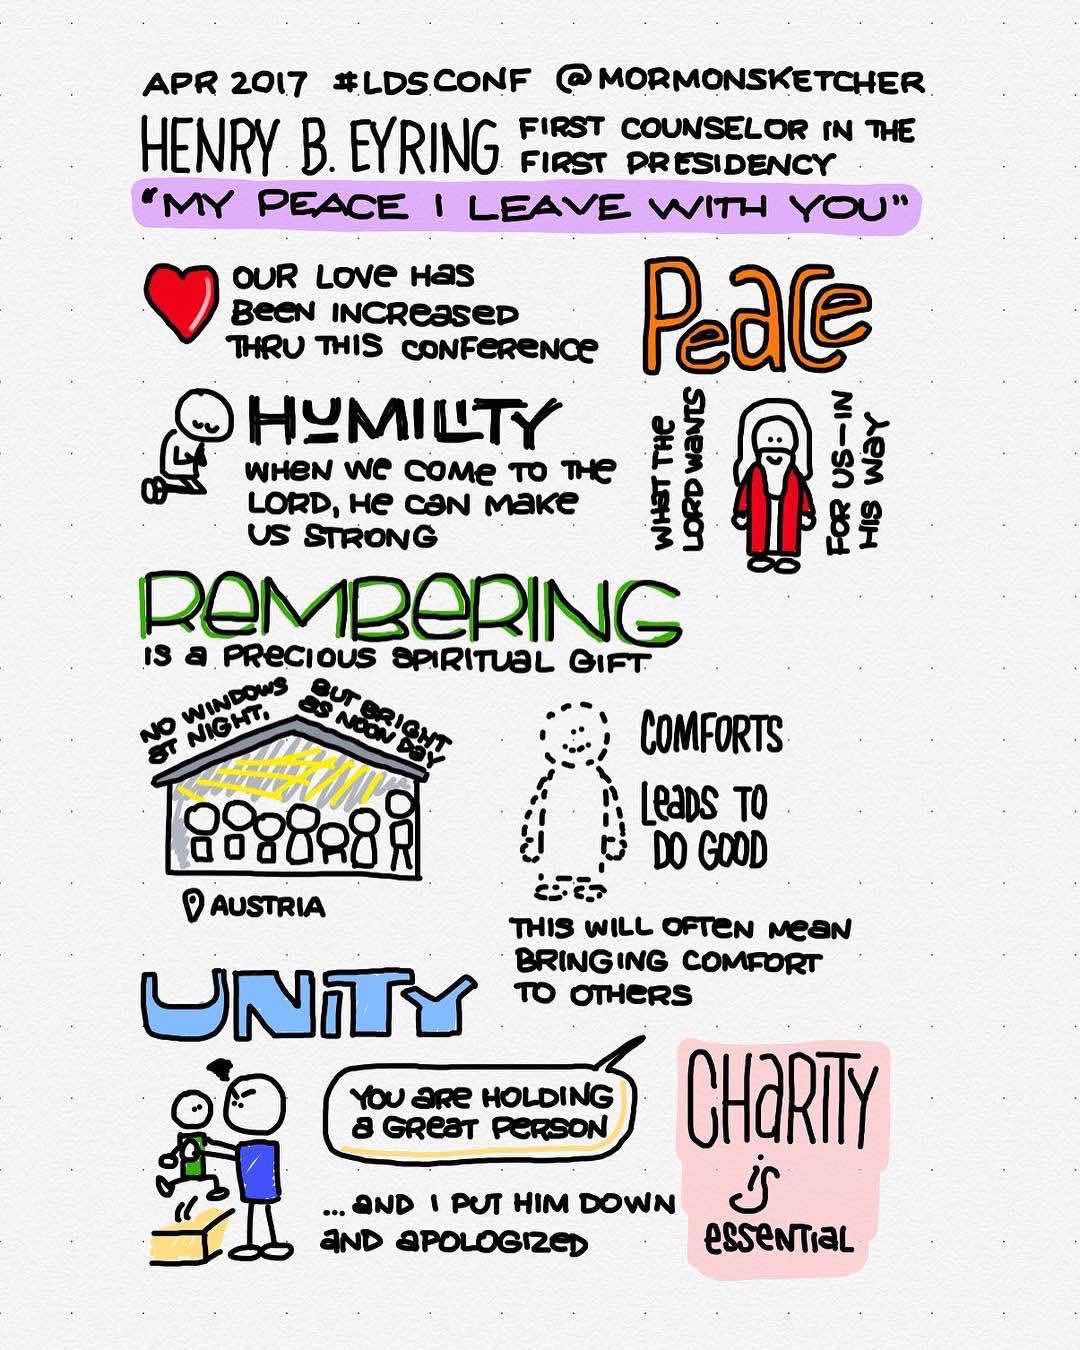 APR 2017 #LDSCONF @MORMONSKETCHER
HENRY B. EYRING FIRST COUNSELOR IN THE
FIRST PRESIDENCY
"MY PEACE I LEAVE WITH YOU"
OUR LOVE HAS
BEEN INCREASED
THRU THIS CONFERENCE
PEACE
HUMILITY
WHEN WE COME TO THE
LORD, HE CAN MAKE
US STRONG
WHAT THE
LORD WANTS
FOR US-IN
HIS WAY
REMBERING
IS A PRECIOUS SPIRITUAL GIFT
NO WINDOWS
AT NIGHT,
BUT BRIGHT
AS NOON DAY
AUSTRIA
COMFORTS
LEADS TO
DO GOOD
THIS WILL OFTEN MEAN
BRINGING COMFORT
TO OTHERS
UNITY
YOU ARE HOLDING
A GREAT PERSON
...AND I PUT HIM DOWN
AND APOLOGIZED
CHARITY
is
ESSENTIAL